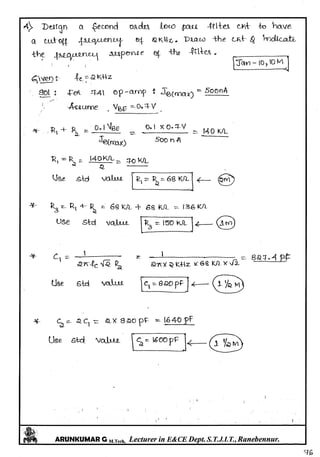 4) Design a second order low pass filter ckt to have
a cut off frequency of 2KHz. Draw the ckt & indicate
the frequency response of the filter.
Jan-10, 10M
Given: fc = 2KHz
Sol: For 741 op-amp : IB(max) = 500nA
Assume , VBE = 0.7V
* R1 + R2 = 0.1VBE / IB(max) = 0.1 x 0.7V / 500nA = 140 KΩ
R1 = R2 = 140KΩ / 2 = 70KΩ
Use std value R1 = R2 = 68KΩ ← 2M
* R3 = R1 + R2 = 68KΩ + 68KΩ = 136KΩ
Use std value R3 = 150KΩ ← 1M
* C1 = 1 / 2π fc √2 R2 = 1 / 2π x 2KHz x 68KΩ x √2 = 827.4 pF
Use std value C1 = 820pF ← 1 ½ M
* C2 = 2C1 = 2 x 820pF = 1640pF
Use std value C2 = 1600pF ← 1 ½ M
ARUNKUMAR G M.Tech, Lecturer in E&CE Dept. S.T.J.I.T., Ranebennur.
46